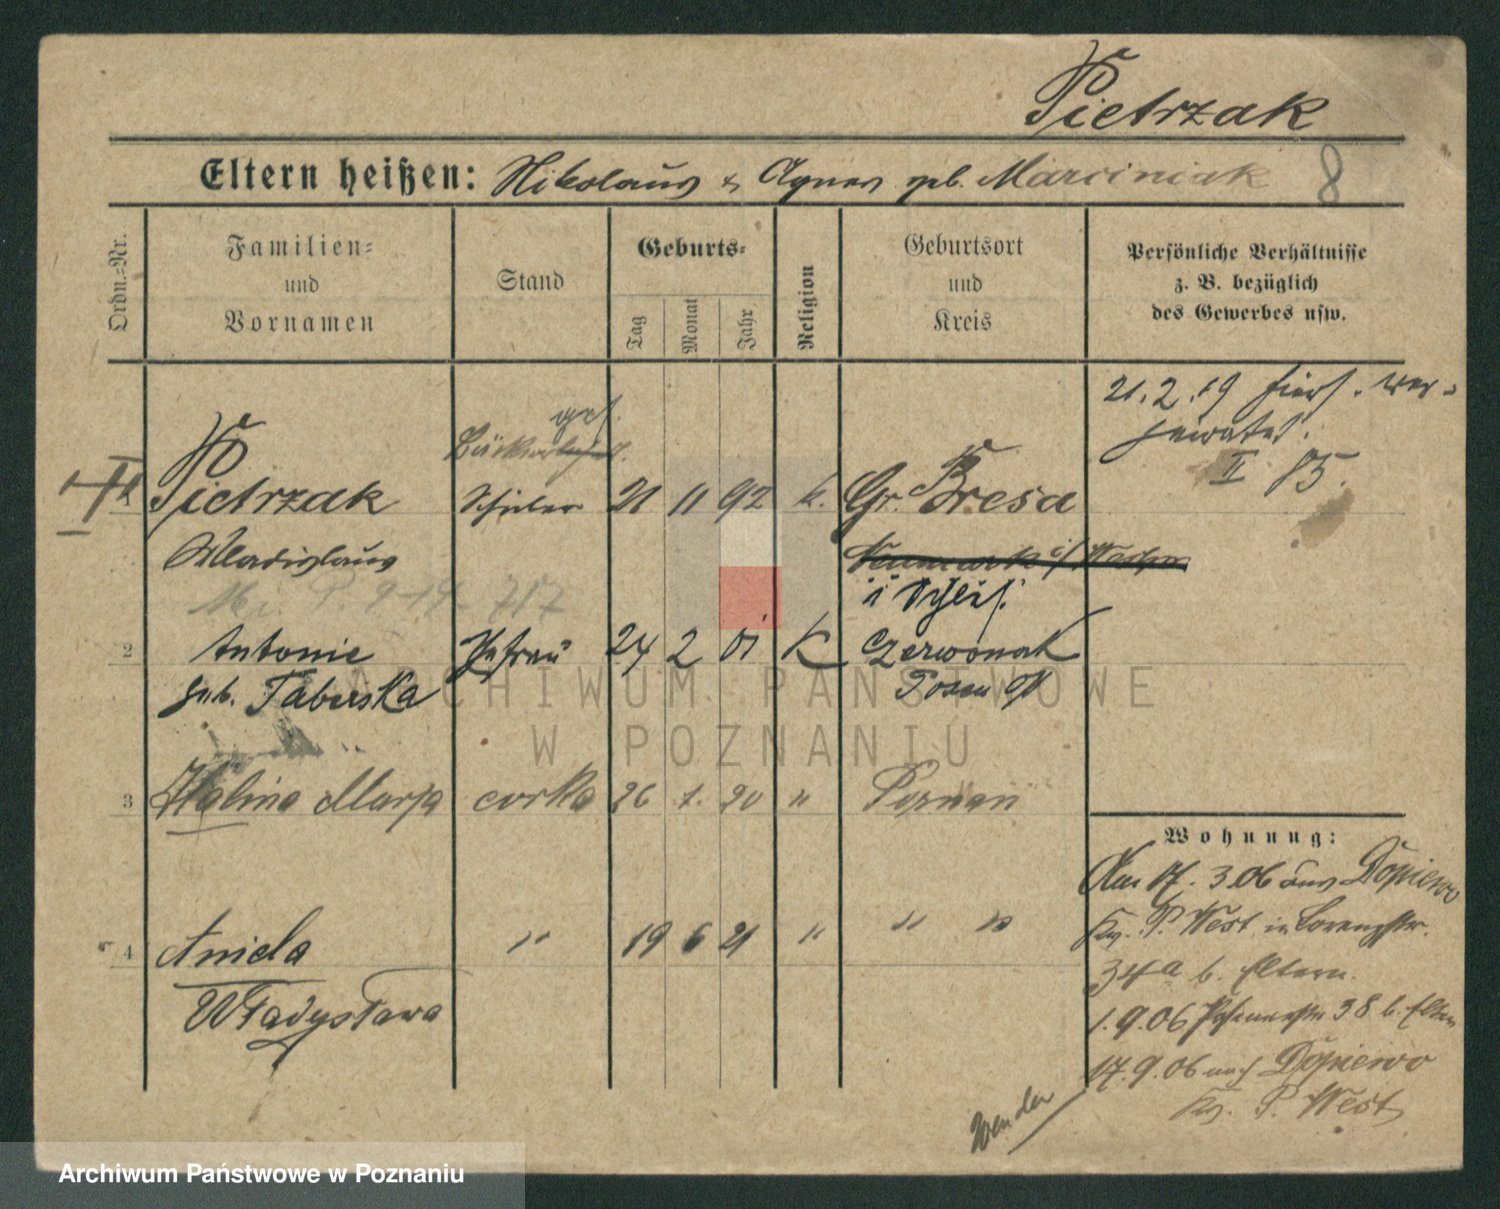 Pietrzak
Eltern heißen: Nikolaus & Agnes geb. Marciniak 8
Ordn.=Nr.
Familien=
und
Vornamen
Stand
Geburts=
Tag
Monat
Jahr
Religion
Geburtsort
und
Kreis
Persönliche Verhältnisse
z. B. bezüglich
des Gewerbes usw.
21. 2. 19
II 85.
1 Pietrzak Schüler 21 11 92 k. Gr. Bresa
Wladislaus
2 Antonie Ehefrau 24 2 01 K Czerwonak
geb. Taberska Posen O
3 Halina Marja corka 26 1. 20 " Poznan
4 Aniela " 19 6 21 " " "
Władysława
Wohnung:
Am 17. 3 06 aus Dopiewo
Kr. P. West in Lorenzstr.
34a b. Eltern.
1. 9. 06 38 b. Eltern
17. 9. 06 nach Dopiewo
Kr. P. West
Wenden
ARCHIWUM PAŃSTWOWE
W POZNANIU
Archiwum Państwowe w Poznaniu